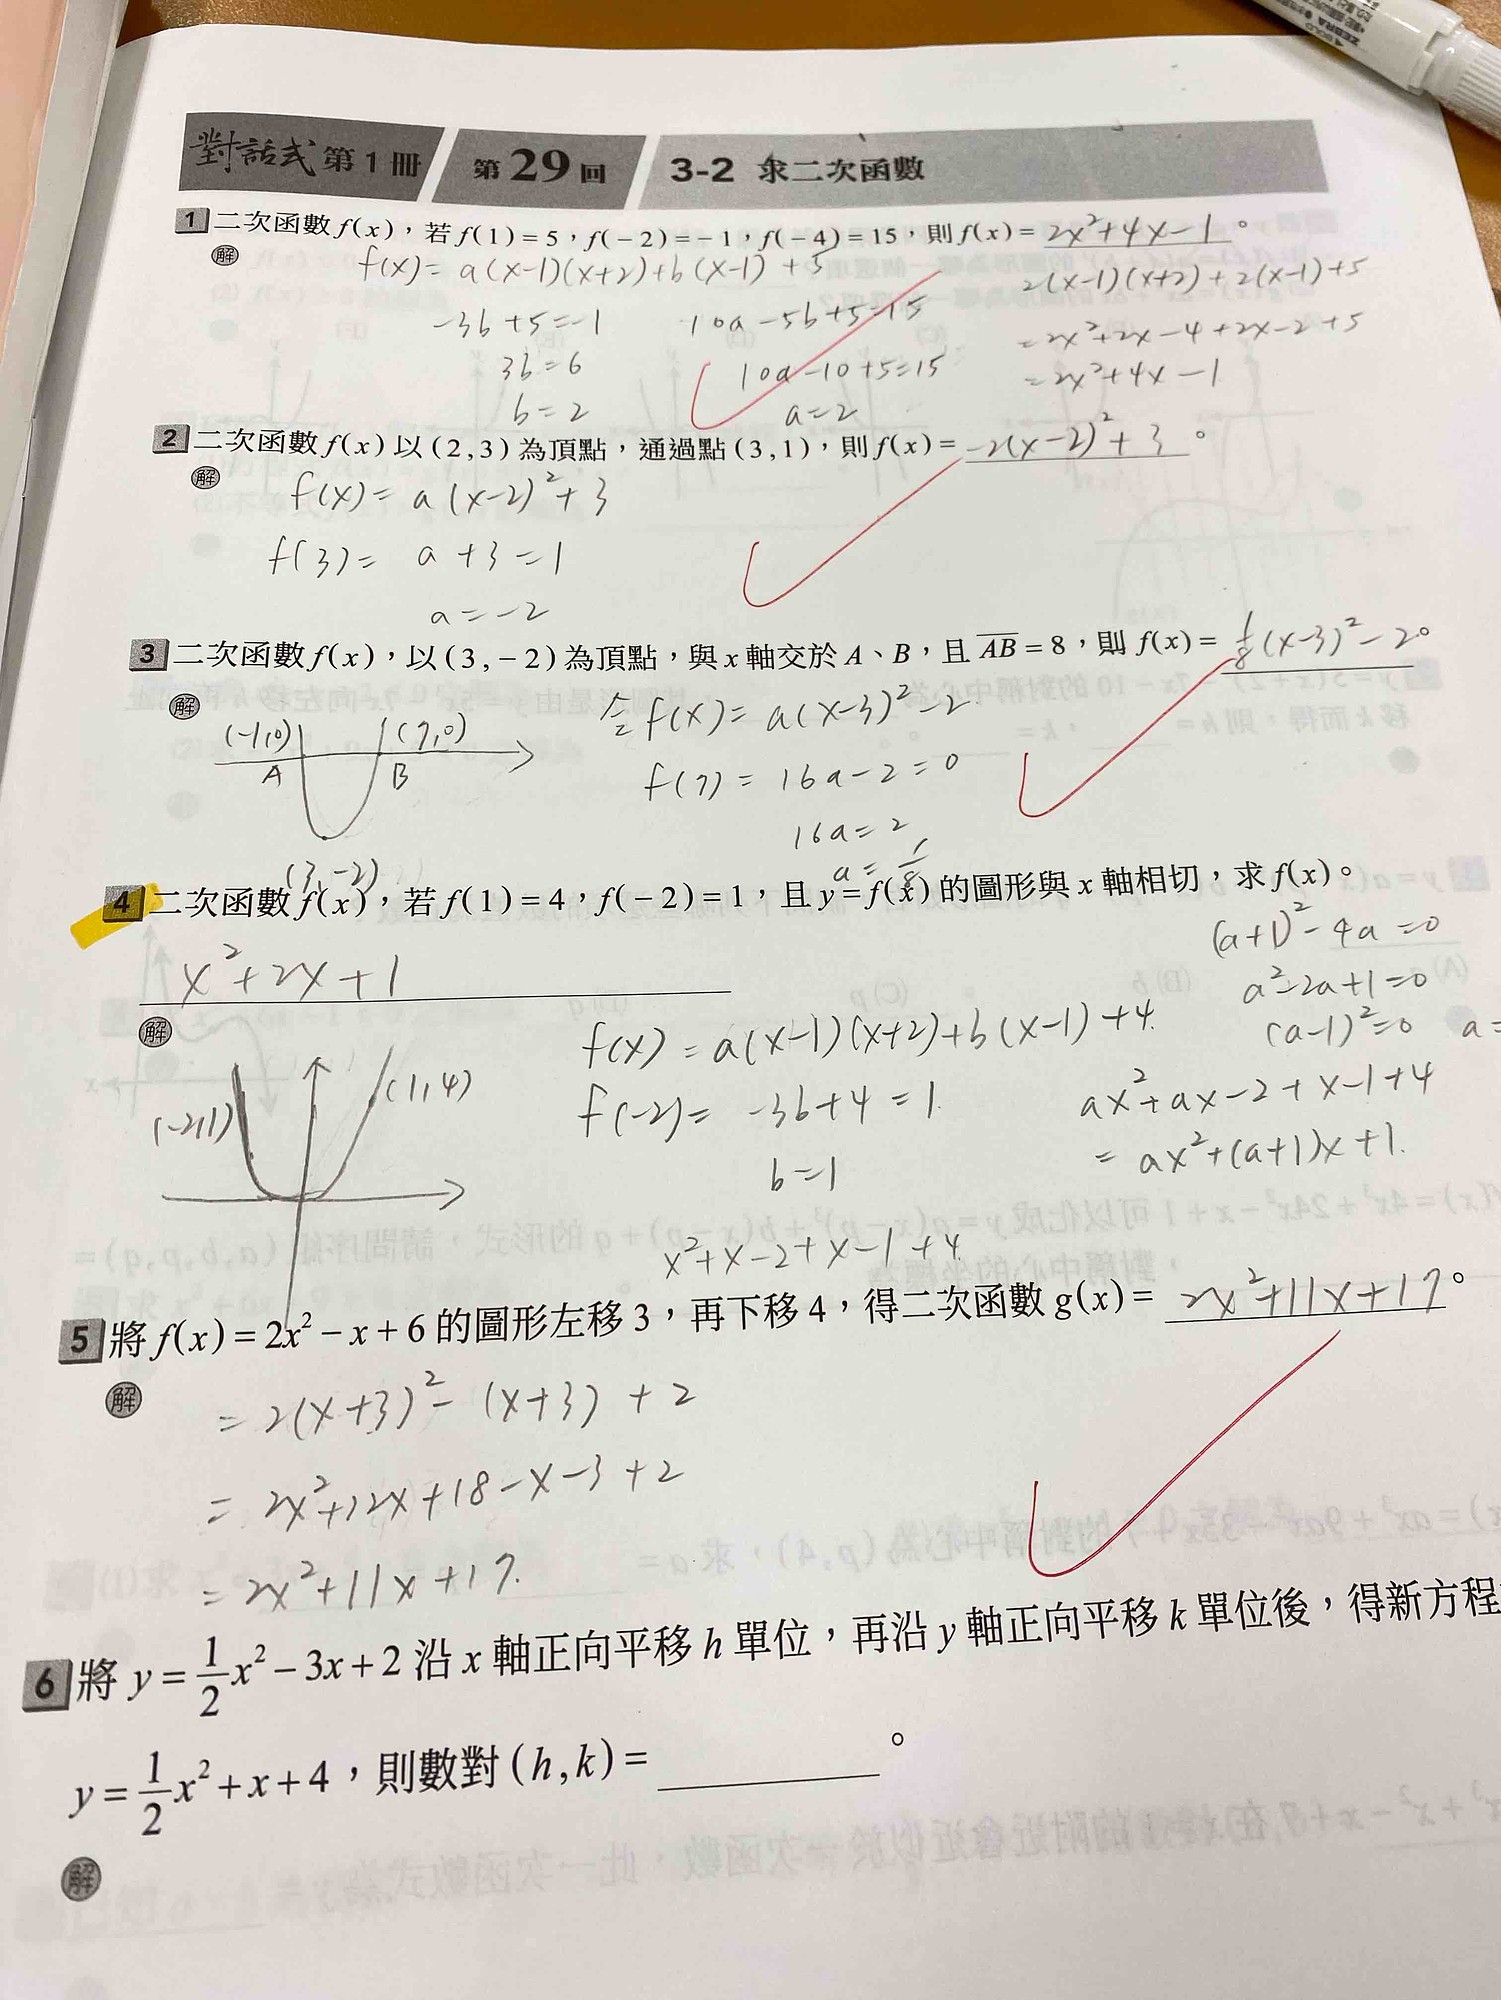 對話式 第1冊 第29回 3-2 求二次函數
1 二次函數f(x)，若f(1)=5，f(-2)=-1，f(-4)=15，則f(x)= 2x²+4x-1。
解 f(x)=a(x-1)(x+2)+b(x-1)+5
2(x-1)(x+2)+2(x-1)+5
-3b+5=-1
10a-5b+5=15
=2x²+2x-4+2x-2+5
3b=6
10a-10+5=15
=2x²+4x-1
b=2
a=2
2 二次函數f(x)以(2,3)為頂點，通過點(3,1)，則f(x)= -2(x-2)²+3。
解 f(x)=a(x-2)²+3
f(3)= a+3=1
a=-2
3 二次函數f(x)，以(3,-2)為頂點，與x軸交於A、B，且AB=8，則f(x)= 1/8(x-3)²-2。
解 令f(x)=a(x-3)²-2
(-1,0) (7,0)
A B
f(7)=16a-2=0
16a=2
a=1/8
(3,-2)
4 二次函數f(x)，若f(1)=4，f(-2)=1，且y=f(x)的圖形與x軸相切，求f(x)。
x²+2x+1
(a+1)²-4a=0
a²-2a+1=0
(a-1)²=0 a=
解 f(x)=a(x-1)(x+2)+b(x-1)+4
(-2,1) (1,4)
f(-2)= -3b+4=1
ax²+ax-2+x-1+4
b=1
=ax²+(a+1)x+1
x²+x-2+x-1+4
5 將f(x)=2x²-x+6的圖形左移3，再下移4，得二次函數g(x)= 2x²+11x+17。
解 =2(x+3)²-(x+3)+2
=2x²+12x+18-x-3+2
=2x²+11x+17.
6 將y=1/2x²-3x+2沿x軸正向平移h單位，再沿y軸正向平移k單位後，得新方程
y=1/2x²+x+4，則數對(h,k)= 。
解